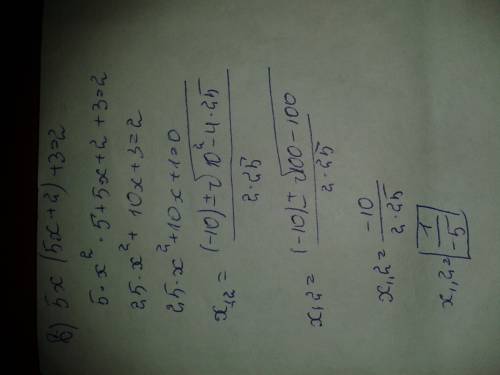 в) 5x (5x+2) +3=2
5·x²·5+5x·2+3=2
25·x²+10x+3=2
25·x²+10x+1=0
x₁,₂ = (-10)±√10²-4·25 / 2·25
x₁,₂ = (-10)±√100-100 / 2·25
x₁,₂ = -10 / 2·25
x₁,₂ = 1 / -5